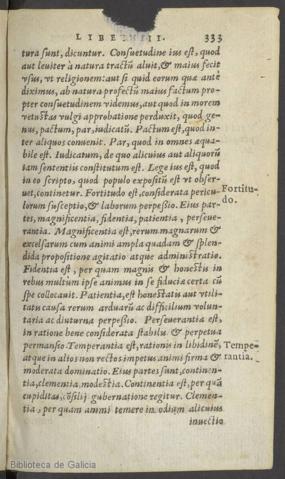 LIBER III. 333
tura sunt, dicuntur. Consuetudine ius est, quod
aut leuiter à natura tractũ aluit, & maius fecit
vsus, vt religionem: aut si quid eorum quæ antè
diximus, ab natura profectũ maius factum pro-
pter consuetudinem videmus, aut quod in morem
vetustas vulgi approbatione perduxit, quod ge-
nus, pactum, par, iudicatũ. Pactum est, quod in-
ter aliquos conuenit. Par, quod in omnes æqua-
bile est. Iudicatum, de quo alicuius aut aliquorũ
iam sententiis constitutum est. Lege ius est, quod
in eo scripto, quod populo expositũ est vt obser-
uet, continetur. Fortitudo est, considerata pericu-
Fortitu-
do.
lorum susceptio, & laborum perpessio. Eius par-
tes, magnificentia, fidentia, patientia, perseue-
rantia. Magnificentia est, rerum magnarum &
excelsarum cum animi ampla quadam & splen-
dida propositione agitatio atque administratio.
Fidentia est, per quam magnis & honestis in
rebus multùm ipse animus in se fiducia certa cũ
spe collocauit. Patientia, est honestatis aut vtili-
tatis causa rerum arduarũ ac difficilium volun-
taria ac diuturna perpessio. Perseuerantia est,
in ratione bene considerata stabilis & perpetua
permansio. Temperantia est, rationis in libidinẽ,
Tempe-
rantia.
atque in alios non rectos impetus animi firma &
moderata dominatio. Eius partes sunt, continen-
tia, clementia, modestia. Continentia est, per quã
cupiditas, cõsilij gubernatione regitur. Clemen-
tia, per quam animi temere in odium alicuius
inuectio
Biblioteca de Galicia